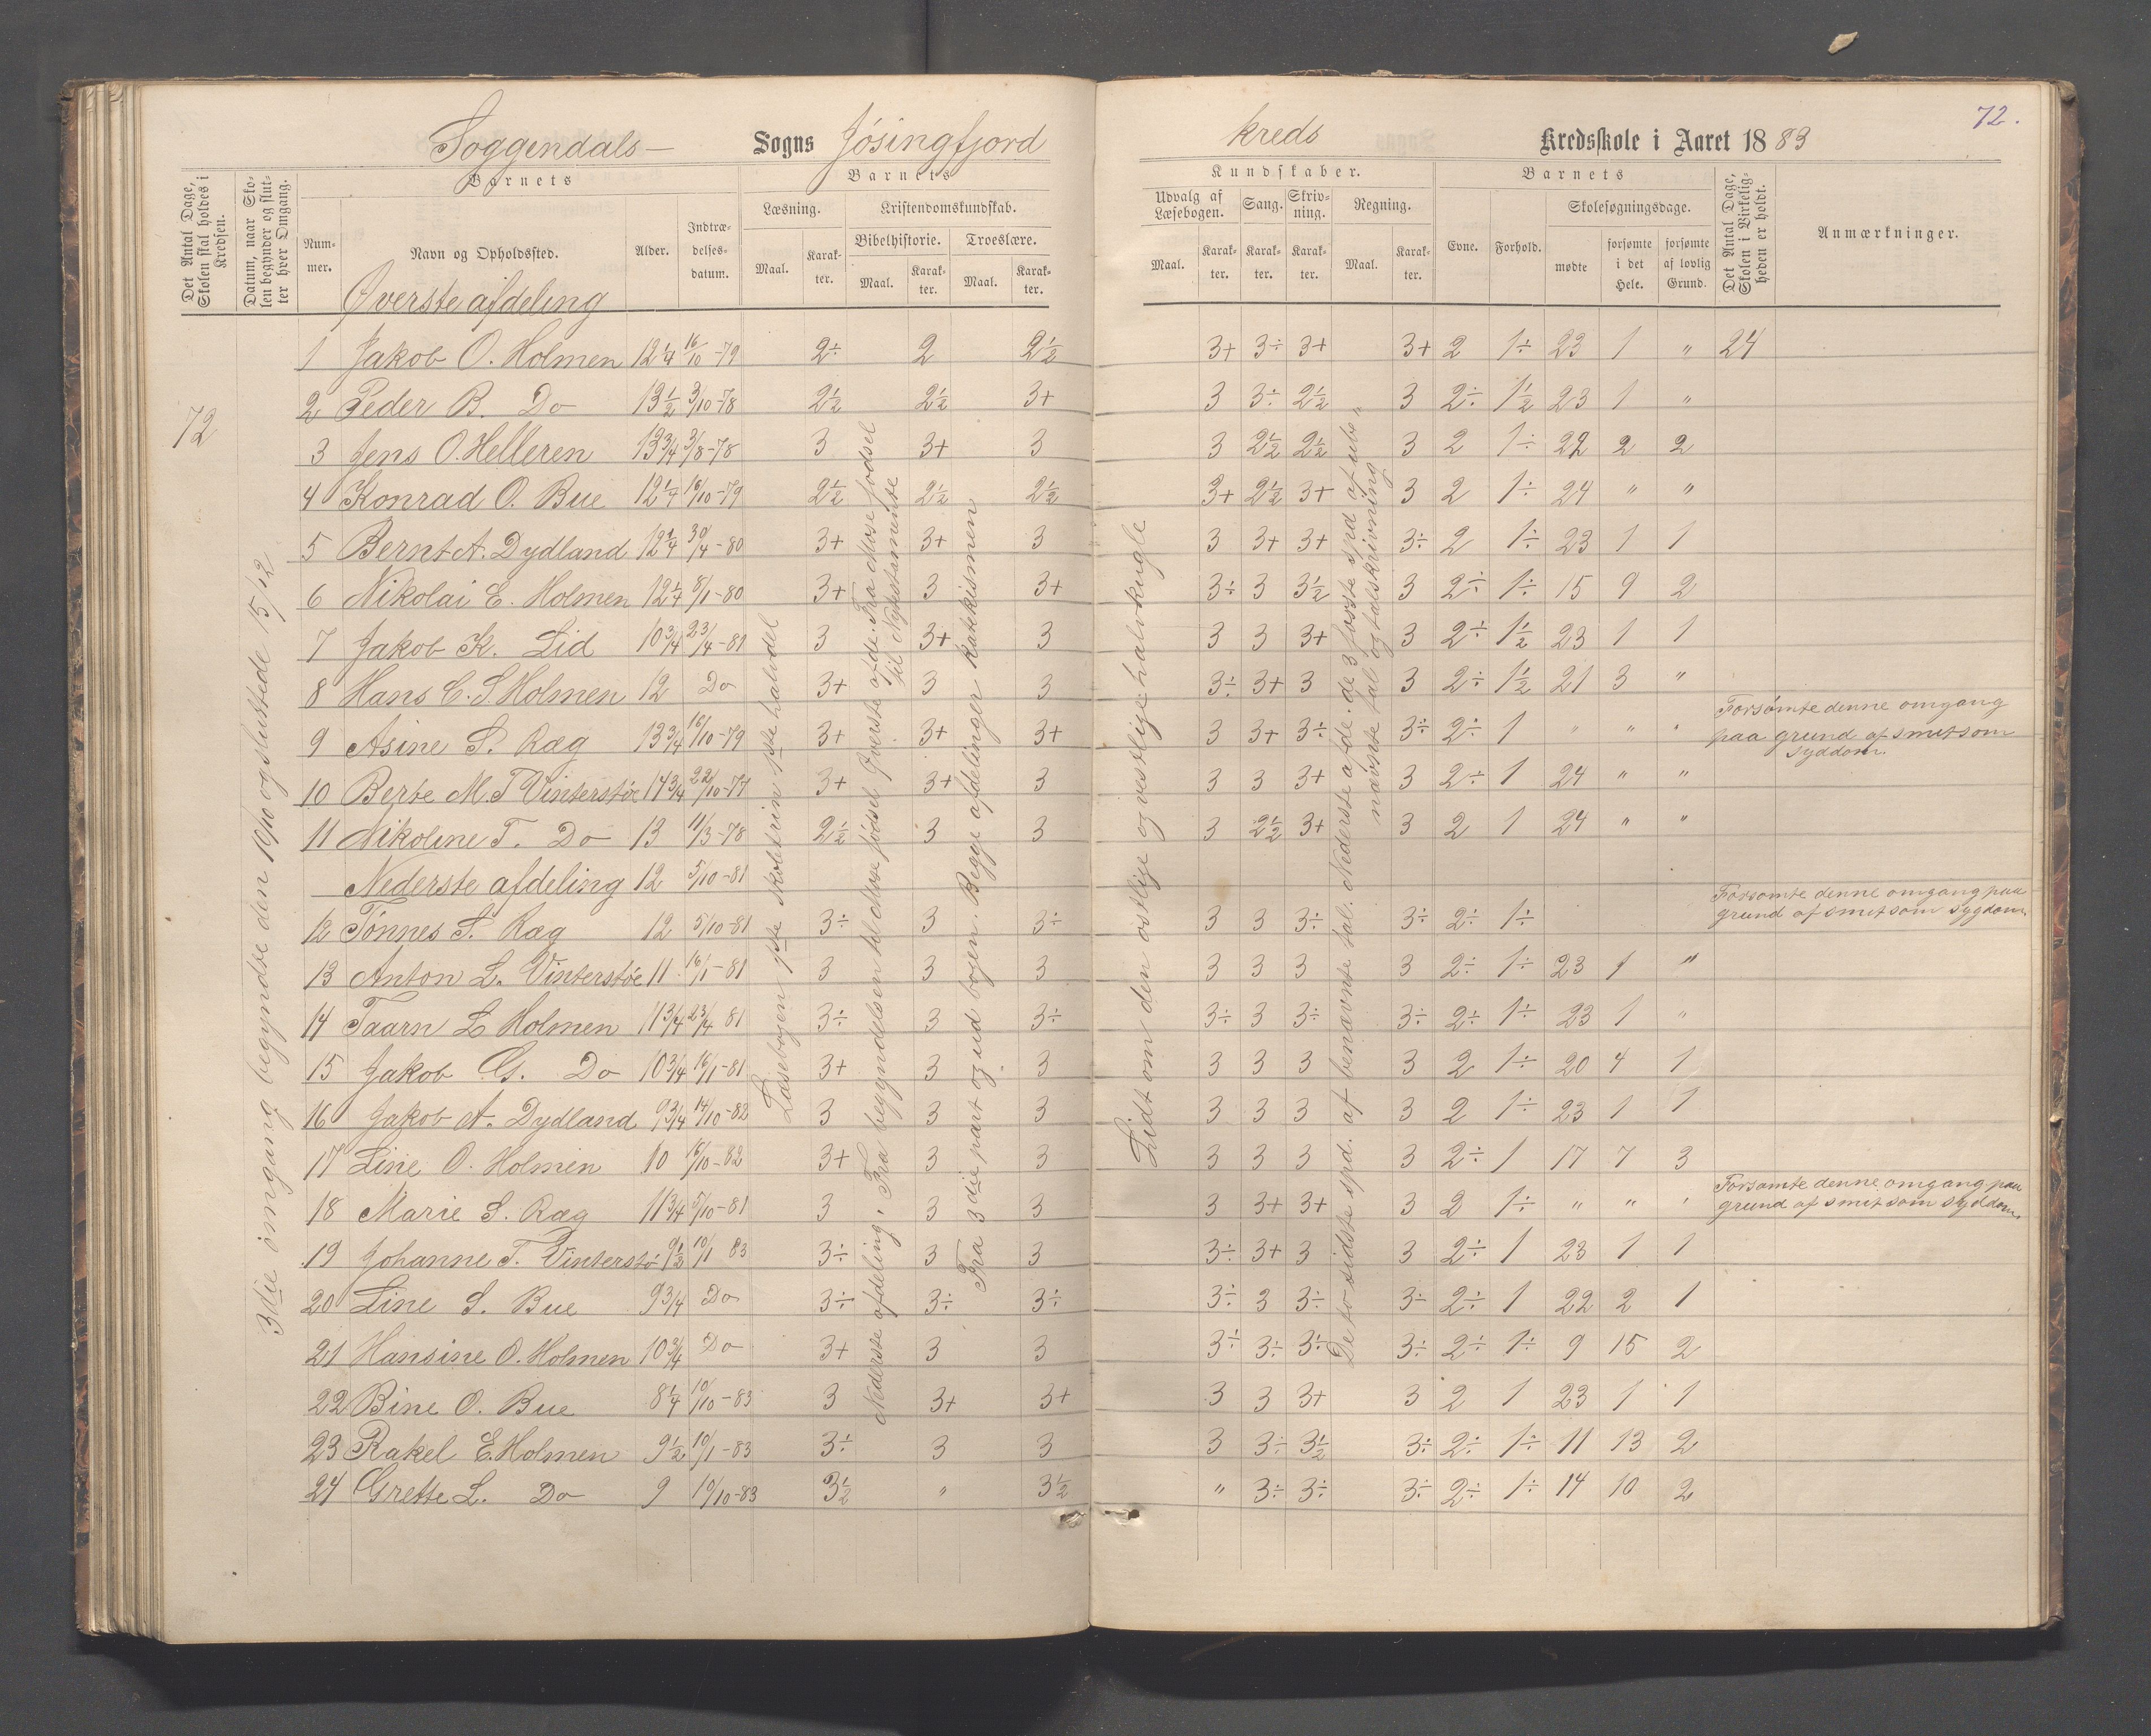 72.
Soggendals- Sogns Jösingfjord kreds Kredsskole i Aaret 1883
Det Antal Dage, Skolen skal holdes i Kredsen.
Datum, naar Skolen begynder og slutter hver Omgang.
Barnets
Nummer.
Navn og Opholdssted.
Alder.
Indtrædelsesdatum.
Barnets
Læsning.
Maal.
Karakter.
Kristendomskundskab.
Bibelhistorie.
Maal.
Karakter.
Troeslære.
Maal.
Karakter.
Kundskaber.
Udvalg af Læsebogen.
Maal.
Karakter.
Sang.
Karakter.
Skrivning.
Karakter.
Regning.
Maal.
Karakter.
Barnets
Evne.
Forhold.
Skolesøgningsdage.
mødte
forsømte i det Hele.
forsømte af lovlig Grund.
Det Antal Dage, Skolen i Virkeligheden er holdt.
Anmærkninger.
Øverste afdeling
1 Jakob O. Holmen 12 1/4 16/10-79 2÷ 2 2 1/2 3+ 3÷ 3+ 3+ 2 1÷ 23 1 " 24
72
2 Peder B. Do 13 1/2 3/10-78 2 1/2 2 1/2 3+ 3 3÷ 2 1/2 3 2÷ 1 1/2 23 1 "
3 Jens O. Helleren 13 3/4 3/8-78 3 3+ 3 3 2 1/2 2 1/2 3 2 1÷ 22 2 2
4 Konrad O. Bue 12 1/4 16/10-79 2 1/2 2 1/2 2 1/2 3+ 2 1/2 3+ 3 2 1÷ 24 " "
5 Bernt A. Dydland 12 1/4 30/4-80 3+ 3+ 3 3 3+ 3+ 3÷ 2 1÷ 23 1 1
6 Nikolai E. Holmen 12 1/4 8/1-80 3+ 3 3+ 3÷ 3 3 1/2 3 2÷ 1÷ 15 9 2
7 Jakob K. Lid 10 3/4 23/4-81 3 3+ 3 3 3 3+ 3 2÷ 1 1/2 23 1 1
8 Hans C. S. Holmen 12 Do 3+ 3 3 3÷ 3+ 3 3 2÷ 1 1/2 21 3 "
9 Asine S. Ræg 13 3/4 16/10-79 3+ 3+ 3+ 3 3+ 3÷ 3÷ 2÷ 1 " " " Forsømte denne omgang
paa grund af smitsom
syddom.
10 Berte M. T Vinterstöe 14 3/4 22/10-77 3+ 3+ 3 3 3 3+ 3 2÷ 1 24 " "
11 Nikoline T. Do 13 11/3-78 2 1/2 3 3 3 2 1/2 3+ 3 2 1 24 " "
Nederste afdeling 12 5/10-81
12 Tønnes S. Ræg 12 5/10-81 3÷ 3 3÷ 3 3 3÷ 3÷ 2÷ 1÷ Forsomte denne omgang paa
grund af smitsom sygdom.
13 Anton L. Vinterstöe 11 16/1-81 3 3 3 3 3 3 3 2÷ 1÷ 23 1 "
14 Taarn L Holmen 11 3/4 23/4 81 3÷ 3 3÷ 3÷ 3 3÷ 3÷ 2÷ 1÷ 23 1 "
15 Jakob G. Do 10 3/4 16/1-81 3+ 3 3 3 3 3 3 2 1÷ 20 4 1
16 Jakob A. Dydland 9 3/4 14/10-82 3 3 3 3 3 3 3 2 1÷ 23 1 1
17 Line O. Holmen 10 16/10-82 3+ 3 3 3 3 3 3 2÷ 1 17 7 3
18 Marie S. Ræg 11 3/4 5/10-81 3 3 3 3 3+ 3+ 3 2 1÷ " " " Forsomte denne omgang paa
grund af smitsom syddom.
19 Johanne T. Vinterstö 9 1/2 10/1 83 3÷ 3 3 3÷ 3+ 3 3 2÷ 1 23 1 1
20 Line S. Bue 9 3/4 Do 3÷ 3÷ 3÷ 3÷ 3 3÷ 3÷ 2÷ 1 22 2 1
21 Hansine O. Holmen 10 3/4 Do 3+ 3 3 3÷ 3÷ 3÷ 3÷ 2÷ 1÷ 9 15 2
22 Bine O. Bue 8 1/4 10/10-83 3 3+ 3+ 3 3 3+ 3 2 1 23 1 1
23 Rakel E. Holmen 9 1/2 10/1-83 3÷ 3 3 3 3÷ 3 1/2 3÷ 2÷ 1÷ 11 13 2
24 Grette L. Do 9 10/10-83 3 1/2 " 3 1/2 " 3÷ 3÷ 3÷ 2÷ 1÷ 14 10 2
3die omgang begyndte den 19/10 og sluttede 15/12
Læsebogen 1ste skoletrin 1ste halvdel
Nederste afdeling, Fra begyndelsen til Mose fødsel Øverste afde. Fra Mose fødsel
til Nytestamente
Fra 3die part og ud bogen. Begge afdelinger Katekismen
Lidt om den østlige og vestlige halvkugle
De to sidste spd. af benævnte tal. Nederste afde. de 3 første spd af ube"
nævnte tal og talskrivning